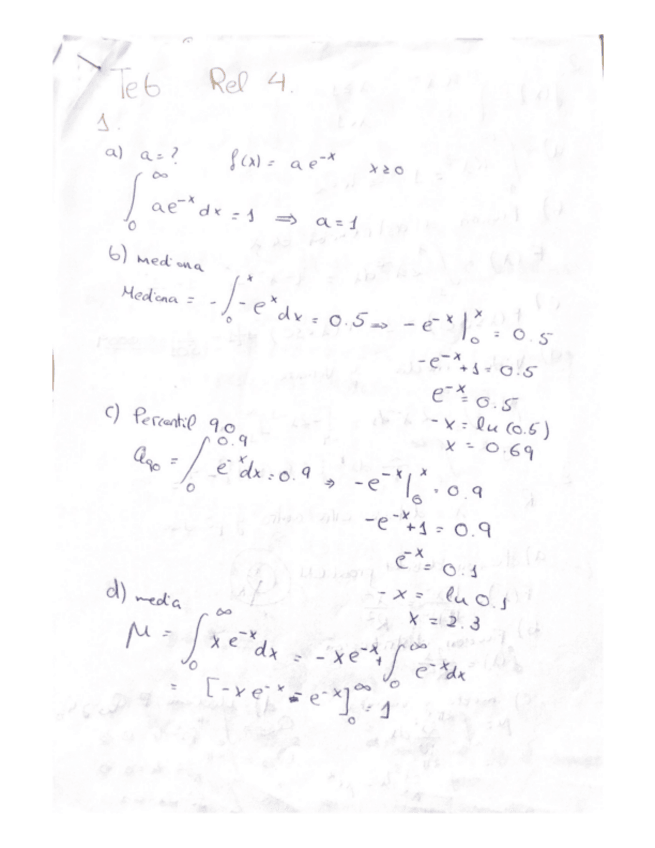 Te6 Rel 4.
1.
a) a=? f(x) = a e^-x x≥0
∫_0^∞ ae^-x dx = 1 ⇒ a=1
b) mediana
Mediana = -∫_0^x -e^x dx = 0.5 ⇒ -e^-x |_0^x = 0.5
-e^-x +1 = 0.5
e^-x = 0.5
-x = ln(0.5)
x = 0.69
c) Percentil 90
a_90 = ∫_0^0.9 e^-x dx = 0.9 ⇒ -e^-x |_0^x = 0.9
-e^-x +1 = 0.9
e^-x = 0.1
-x = ln 0.1
x = 2.3
d) media
μ = ∫_0^∞ x e^-x dx = -xe^-x + ∫_0^∞ e^-x dx
= [-xe^-x - e^-x]_0^∞ = 1